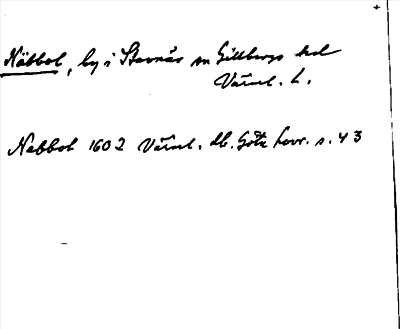 Näbbol, by i Stavnäs sn Gillbergs hd
Värml. L.
Nabbol 1602 Värml. db. Göta hovr. s. 43